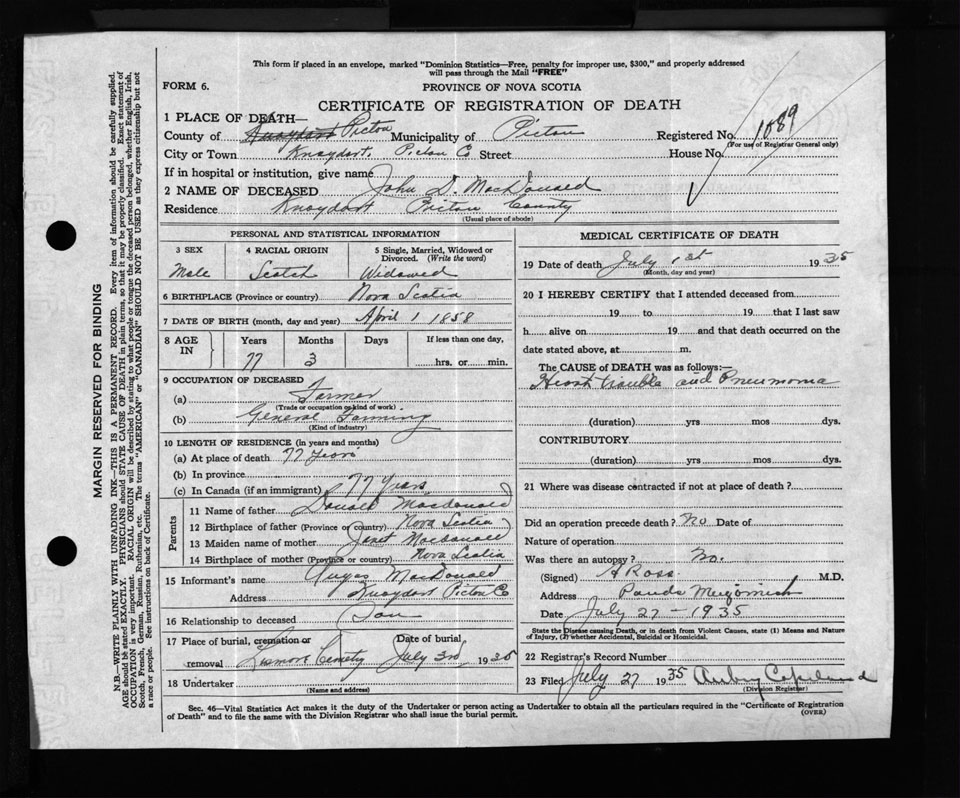 This form if placed in an envelope, marked "Dominion Statistics—Free, penalty for improper use, $300," and properly addressed
will pass through the Mail "FREE"
FORM 6.
PROVINCE OF NOVA SCOTIA
CERTIFICATE OF REGISTRATION OF DEATH
1 PLACE OF DEATH—
County of Knoydart Picton Municipality of Picton Registered No. 1089
(For use of Registrar General only)
City or Town Knoydart. Picton Co Street House No.
If in hospital or institution, give name
2 NAME OF DECEASED John D. MacDonald
Residence Knoydart Picton County
(Usual place of abode)
PERSONAL AND STATISTICAL INFORMATION
3 SEX 4 RACIAL ORIGIN 5 Single, Married, Widowed or
Divorced. (Write the word)
Male Scotch Widowed
6 BIRTHPLACE (Province or country) Nova Scotia
7 DATE OF BIRTH (month, day and year) April 1 1858
8 AGE IN Years Months Days If less than one day,
77 3 hrs. or min.
9 OCCUPATION OF DECEASED
(a) Farmer
(Trade or occupation or kind of work)
(b) General Farming
(Kind of industry)
10 LENGTH OF RESIDENCE (in years and months)
(a) At place of death 77 Years
(b) In province
(c) In Canada (if an immigrant) 77 Years
Parents
11 Name of father Donald Macdonald
12 Birthplace of father (Province or country) Nova Scotia
13 Maiden name of mother Janet Macdonald
14 Birthplace of mother (Province or country) Nova Scotia
15 Informant's name Angus MacDonald
Address Knoydart Picton Co
16 Relationship to deceased Son
17 Place of burial, cremation or Date of burial
removal Lismore Cemetry July 3rd 1935
18 Undertaker
(Name and address)
MEDICAL CERTIFICATE OF DEATH
19 Date of death July 1st 1935
(Month, day and year)
20 I HEREBY CERTIFY that I attended deceased from
19 to 19 that I last saw
h alive on 19 and that death occurred on
the date stated above, at m.
The CAUSE of DEATH was as follows:—
Heart trouble and Pneumonia
(duration) yrs mos dys.
CONTRIBUTORY
(duration) yrs. mos. dys.
21 Where was disease contracted if not at place of death?
Did an operation precede death? No Date of
Nature of operation
Was there an autopsy? No.
(Signed) A Ross M.D.
Address Merigomish
Date July 27 - 1935
State the Disease causing Death, or in death from Violent Causes, state (1) Means and Nature
of Injury, (2) whether Accidental, Suicidal or Homicidal.
22 Registrar's Record Number
23 Filed July 27 1935 Copeland
(Division Registrar)
Sec. 46—Vital Statistics Act makes it the duty of the Undertaker or person acting as Undertaker to obtain all the particulars required in the "Certificate of Registration
of Death" and to file the same with the Division Registrar who shall issue the burial permit.
(OVER)
MARGIN RESERVED FOR BINDING
N.B.—WRITE PLAINLY WITH UNFADING INK—THIS IS A PERMANENT RECORD. Every item of information should be carefully supplied.
AGE should be stated EXACTLY. PHYSICIANS should STATE CAUSE OF DEATH in plain terms, so that it may be properly classified. Exact statement of
OCCUPATION is very important. RACIAL ORIGIN will be described by stating to what people or tongue the deceased person belonged, whether English, Irish,
Scotch, French, German, Russian, Ruthenian, etc. The terms "AMERICAN" or "CANADIAN" SHOULD NOT BE USED as they express citizenship but not
a race or people. See instructions on back of Certificate.